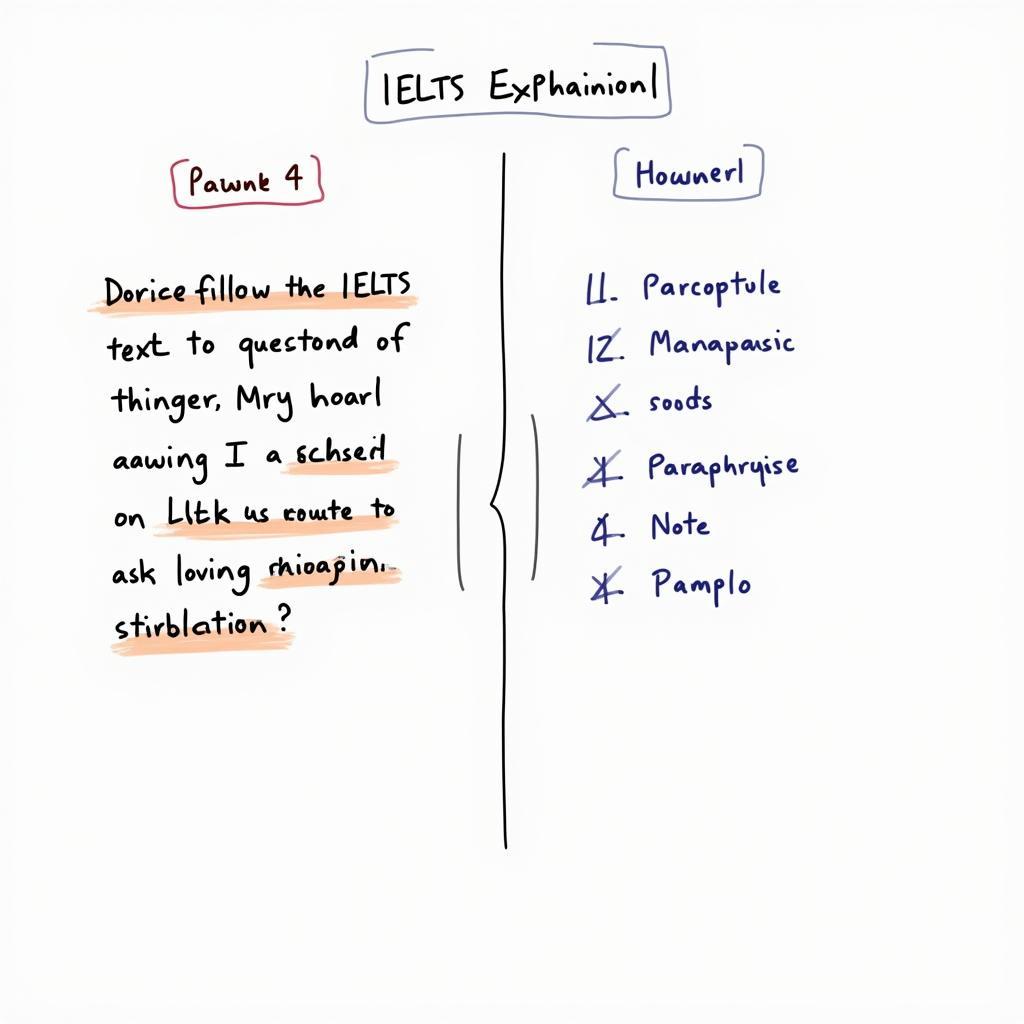 IELTS Exphainionl
Pawnk 4
Dorice fillow the IELTS
text to questond of
thinger, Mry hoarl
aawing I a schseil
on Lltk us route to
ask loving rhioapin.
stirblation?
Hownerl
11. Parcoptule
12. Manapausic
X. soods
X. Paraphryise
4. Note
X. Pamplo